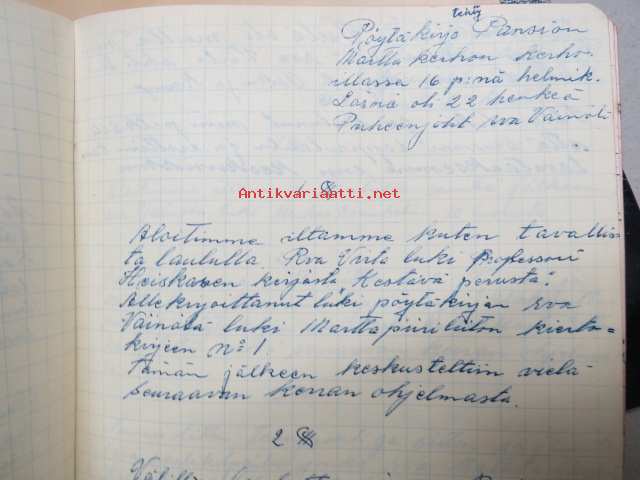 tehty
Pöytäkirja Pansion
Martta kerhon kerho-
illassa 16 p:nä helmik.
Läsnä oli 22 henkeä
Puheenjoht rva Väinölä
1 §
Antikvariaatti.net
Aloitimme iltamme kuten tavallis
ta laululla. Rva Virta luki Professori
Heiskasen kirjasta, Kestävä perusta".
Allekirjoittanut luki pöytäkirjan rva
Väinölä luki Marttapiiriliiton kierto-
kirjeen no 1
Tämän jälkeen keskusteltiin vielä
seuraavan kerran ohjelmasta.
2 §